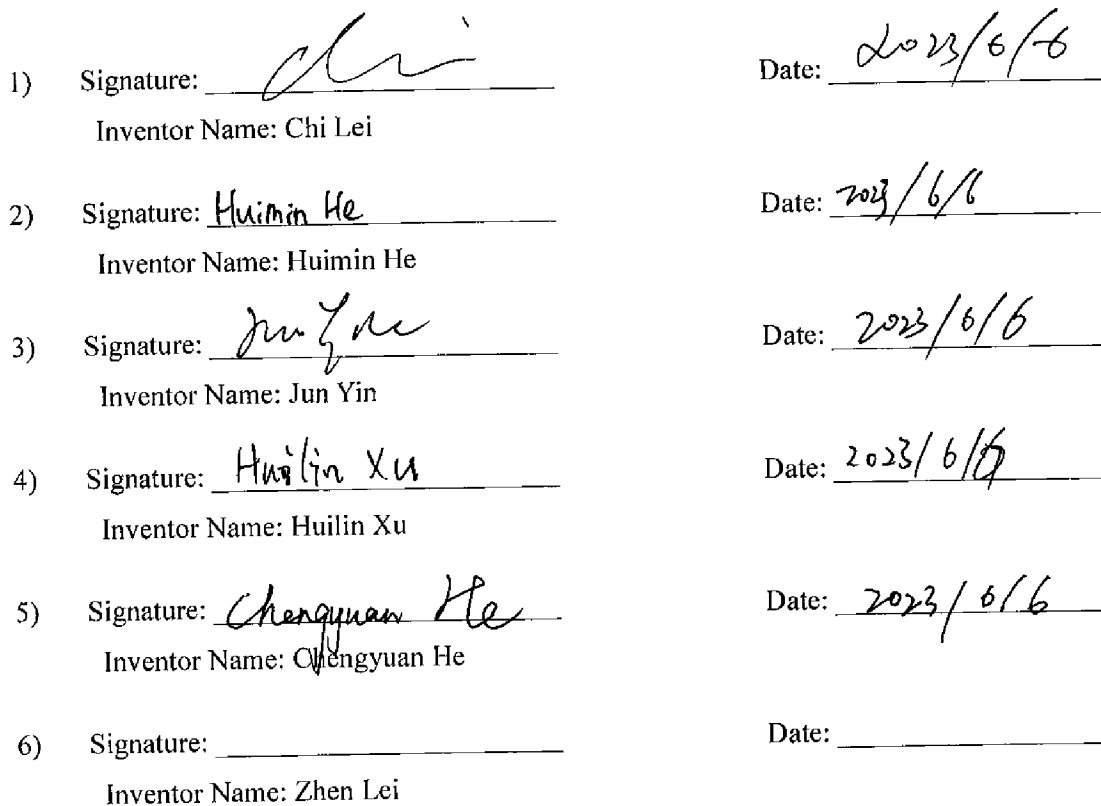 1) Signature: Chi Date: 2023/6/6
Inventor Name: Chi Lei
2) Signature: Huimin He Date: 2023/6/6
Inventor Name: Huimin He
3) Signature: Jun Yin Date: 2023/6/6
Inventor Name: Jun Yin
4) Signature: Huilin Xu Date: 2023/6/6
Inventor Name: Huilin Xu
5) Signature: Chengyuan He Date: 2023/6/6
Inventor Name: Chengyuan He
6) Signature: Date:
Inventor Name: Zhen Lei